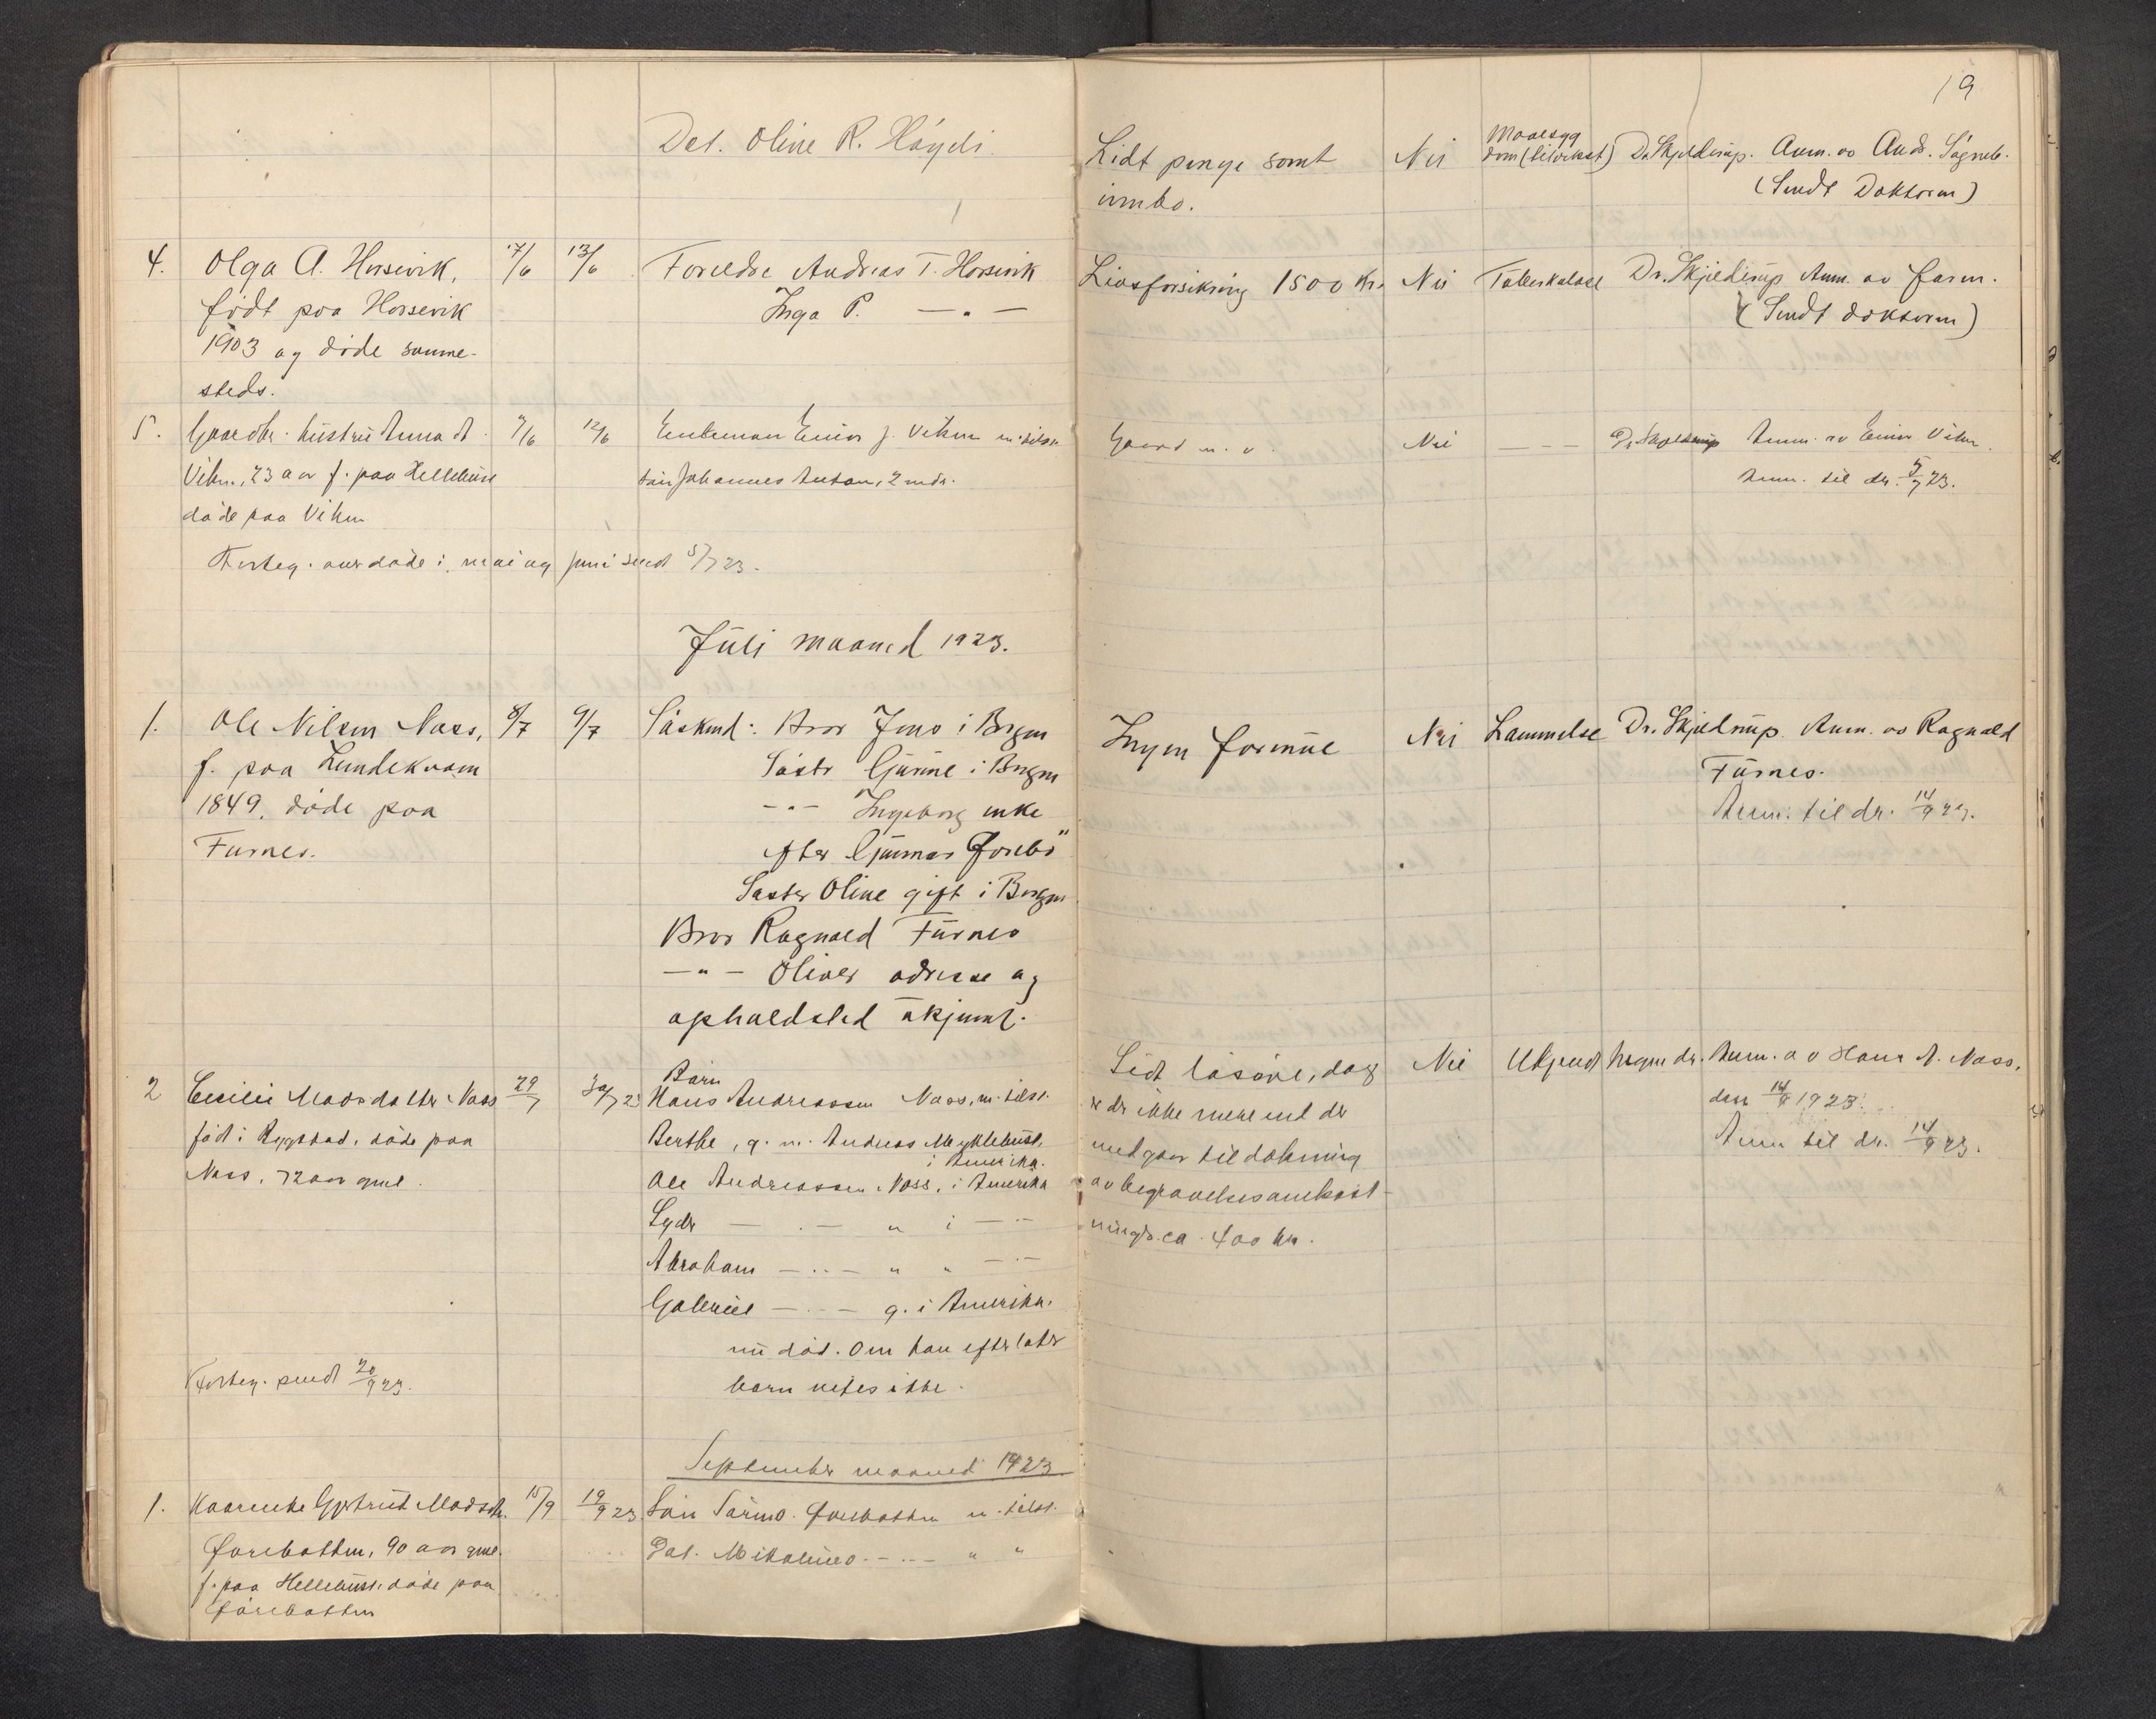 19
Dat. Oline R. Høydi.
Lidt penge samt
innbo.
Nei
Dr. Skjelderup.
Anm. av Andr.
(Sendt Doktoren)
4.
Olga A. Horsevik,
født paa Horsevik
1903 og døde samme-
steds.
17/6
13/6
Foreldre Andreas T. Horsevik
Inga P. — " —
Livsforsikring 1500 Kr.
Nei
Tuberkulose
Dr. Skjelderup
Anm. av faren.
(Sendt doktoren)
5.
Gaardbr. hustru Anna
Viken, 23 aar f. paa Hellebust
døde paa Viken
7/6
12/6
Enkeman Einar J. Viken m. tilsn.
søn Johannes Anton, 2 mdr.
Gaard m. v.
Nei
— —
Dr. Skjelderup
Anm. av Einar Viken.
Anm. til dr. 5/7 23.
Forteg. over døde i mai og juni sendt 5/7 23.
Juli maaned 1923.
1.
Ole Nilsen Næss,
f. paa Lundekvam
1849, døde paa
Furnes.
8/7
9/7
Søskend: Bror Jens i Bergen
Søster Gurine i Bergen
— " — Ingeborg enke
efter Gunnar Førebø"
Søster Oline gift i Bergen
Bror Ragnald Furnes
— " — Oliver adresse og
opholdsted ukjennt.
Ingen formue
Nei
Lammelse
Dr. Skjelderup.
Anm. av Ragnald
Furnes.
Anm. til dr. 14/9 23.
2
Cecilie Madsdatter Næss
født i Rygstad, døde paa
Næss, 72 aar gml.
29/7
30/7 23
Barn
Hans Andreassen Næss, m. tilst.
Berthe, g. m. Andreas Myklebust,
i Amerika.
Ole Andreassen Næss, i Amerika
Lydr — . — " i — " —
Abraham — .. — " " — " —
Gabriel — .. — g. i Amerika.
nu død. Om han efterlater
barn vites ikke.
Lidt løsøre, dog
er der ikke mere end der
medgaar til dekning
av begravelsesomkost-
ninger. ca. 400 kr.
Nei
Ukjendt
Ingen dr.
Anm. av Hans A. Næss,
den 14/9 1923.
Anm til dr. 14/9 23.
Forteg. sendt 20/9 23.
September maaned 1923
1.
Kaarenke Gjertrud Madsdtr.
Førebotten, 90 aar gml.
f. paa Hellebust, døde paa
Førebotten
15/9
19/9 23
Søn Førebotten m. tilst.
Dat. — .. — " "